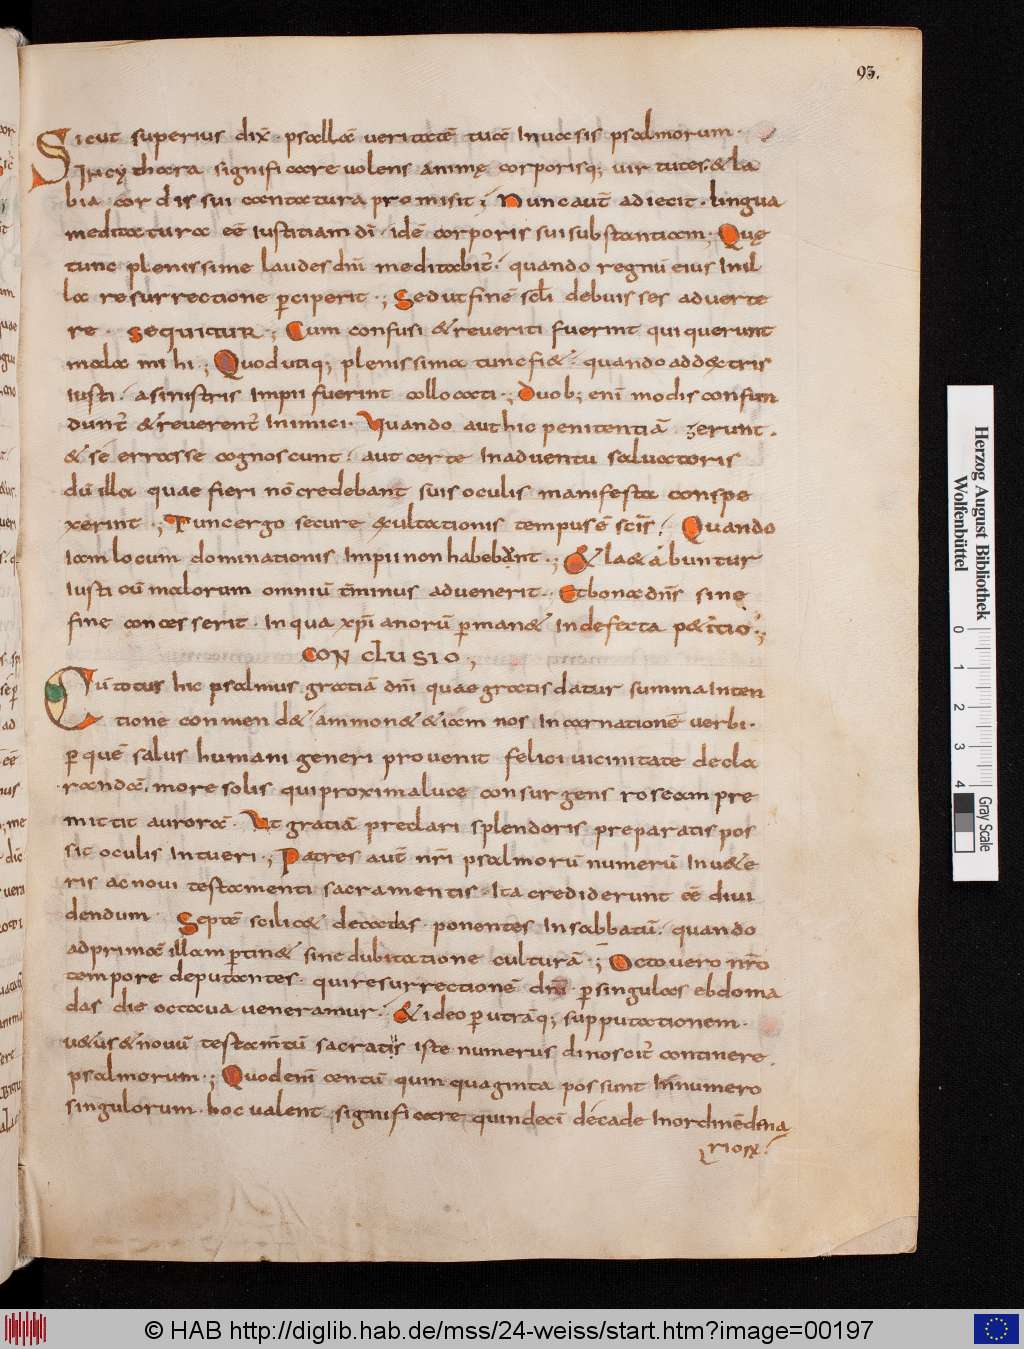 93.
Sicut superius dix̄ · psallā veritatē tuā In vasis psalmorum ·
In cythara significare volens animę corporisq; virtutes · & la
bia cordis sui cantatura promisit ; Nunc aut̄ adiecit · lingua
meditatura eē Iustitiam dī · idē corporis sui substantiam · Quę
tunc plenissime laudes dn̄i meditabit̄ · quando regnū eius In il
la resurrectione ꝑciperit · ; Sed ut finē sc̄li debuisses adverte
re · sequitur · ; Cum confusi & reveriti fuerint qui querunt
mala mihi · ; Quod utiq; plenissima tunc fi& · quando ad dextris
Iusti · a sinistris Impii fuerint collocati · ; Duob; enī modis confun
dunt̄ & reverent̄ Inimici · Quando aut hic penitentiā gerunt ·
& se errasse cognoscunt · aut certe In adventu salvatoris
dū illa quae fieri nō credebant suis oculis manifesta conspe
xerint · ; Tunc ergo secure exultationis tempus ē sc̄is · Quando
Iam locum dominationis Impii non habebunt · ; & la&abuntur
Iusti cū malorum omniū t̄minus advenerit · Et bona dn̄s sine
fine concesserit · In qua xp̄ianorū ꝑman& Indefecta p&itio · ;
CONCLUSIO ;
Cū totus hic psalmus gratiā dn̄i quae gratis datur summa Inten
tione conmend& ammon& & iam nos Incarnationē verbi ·
ꝑ quē salus humani generi provenit felici vicinitate decla
randā · more solis qui proxima luce consurgens roseam pre
mittit aurorā · Ut gratiā preclari splendoris preparatis pos
sit oculis Intueri · ; Patres aut̄ nr̄i psalmorū numerū In v&e
ris ac novi testamenti sacramentis · Ita crediderunt eē divi
dendum · Septē scilic& decadas ponentes In sabbatū · quando
ad primā illam ꝑtin& sine dubitatione culturā · ; Octo vero nr̄o
tempore deputantes · qui resurrectionē dn̄i ꝑ singulas ebdoma
das die octava veneramur · & ideo ꝑ utrāq; supputationem ·
v&us & novū testam̄tū sacratis iste numerus dinoscit̄ continere ·
psalmorum · ; Quod enī centū quinquaginta possunt In numero
singulorum · hoc valent significare quindecī decade In ordinē dena
rioꝝ ·
Herzog August Bibliothek
Wolfenbüttel
0 1 2 3 4
Gray Scale
© HAB http://diglib.hab.de/mss/24-weiss/start.htm?image=00197